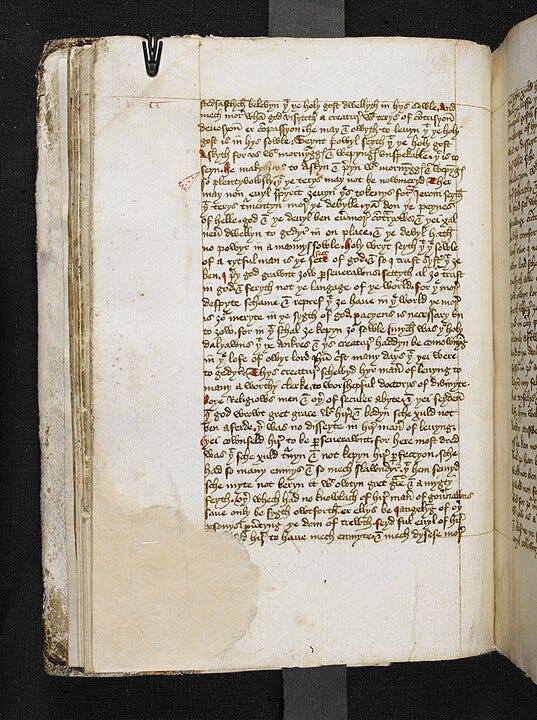 stedfastlych belevyn þt þe holy gost dwellyth in hys sowle. And
mech mor whan god visyteth a creatur wt terys of contrisyon
devosyon er compassyon. he may & owyth to levyn þt þe holy
gost is in hys sowle. Seynt powyl seyth þt þe holy gost
askyth for vs wt mornynggys & wepyngys vnspekable. þt is to
seyn he makyth vs to askyn & preyn wt mornynggys & wepyngys
so plentyvowsly þt þe terys may not be nowmeryd. Ther
may non euyl spyrit ȝeuyn þes tokenys. for Jerom seyth
þt terys turmentyn mor þe devylle þan don þe peynes
of helle. god & þe deuyl ben euyrmor contraryows & þei xal
neuyr dwellyn togedyr in on place. & þe devyl hath
no powyr in a mannys sowle. Holy wryt seyth þt þe sowle
of a rytful man is þe sete of god. & so I trust syster þt ȝe
ben. I prey god grawnt ȝow perseuerawns settyth al ȝowr trust
in god & feryth not þe langage of þe world. for þe mor
despyte schame & repref þt ȝe haue in þe world þe mor
is ȝowr meryte in þe sygth of god. pacyens is necessary vn
to ȝow. for in þt schal ȝe kepyn ȝowr sowle. Mych was þe holy
dalyawns þt þe ankres & þis creatur haddyn be comownyng
in þe lofe of owyr lord Jhu crist many days þt þei were
to gedyr. Thys creatur schewyd hyr maner of leuyng to
many a worthy clerke. to worshepful doctorys of divinyte.
boþe religyows men & oþer of seculer abyte. & þei seyden
þt god wrowt gret grace wt hir & bodyn sche xuld not
ben aferde. þer was no disseyte in hir maner of leuyng.
þei cownseld hir to be perseuerawnt for here most dred
was þt sche xuld turnyn & not kepyn hir perfeccyon. sche
had so many enmys & so mech slawndyr. þt hem semyd
sche myte not beryn it wtowtyn gret grace & a mygty
feyth. Oþer whech had no knowlach of hir maner of gouernawns
saue only be sygth owtforth er ellys be jangelyng of oþer
personys peruertyng þe dom of trewth seyd ful euyl of hir
hir to haue mech enmyte & mech dysese mor